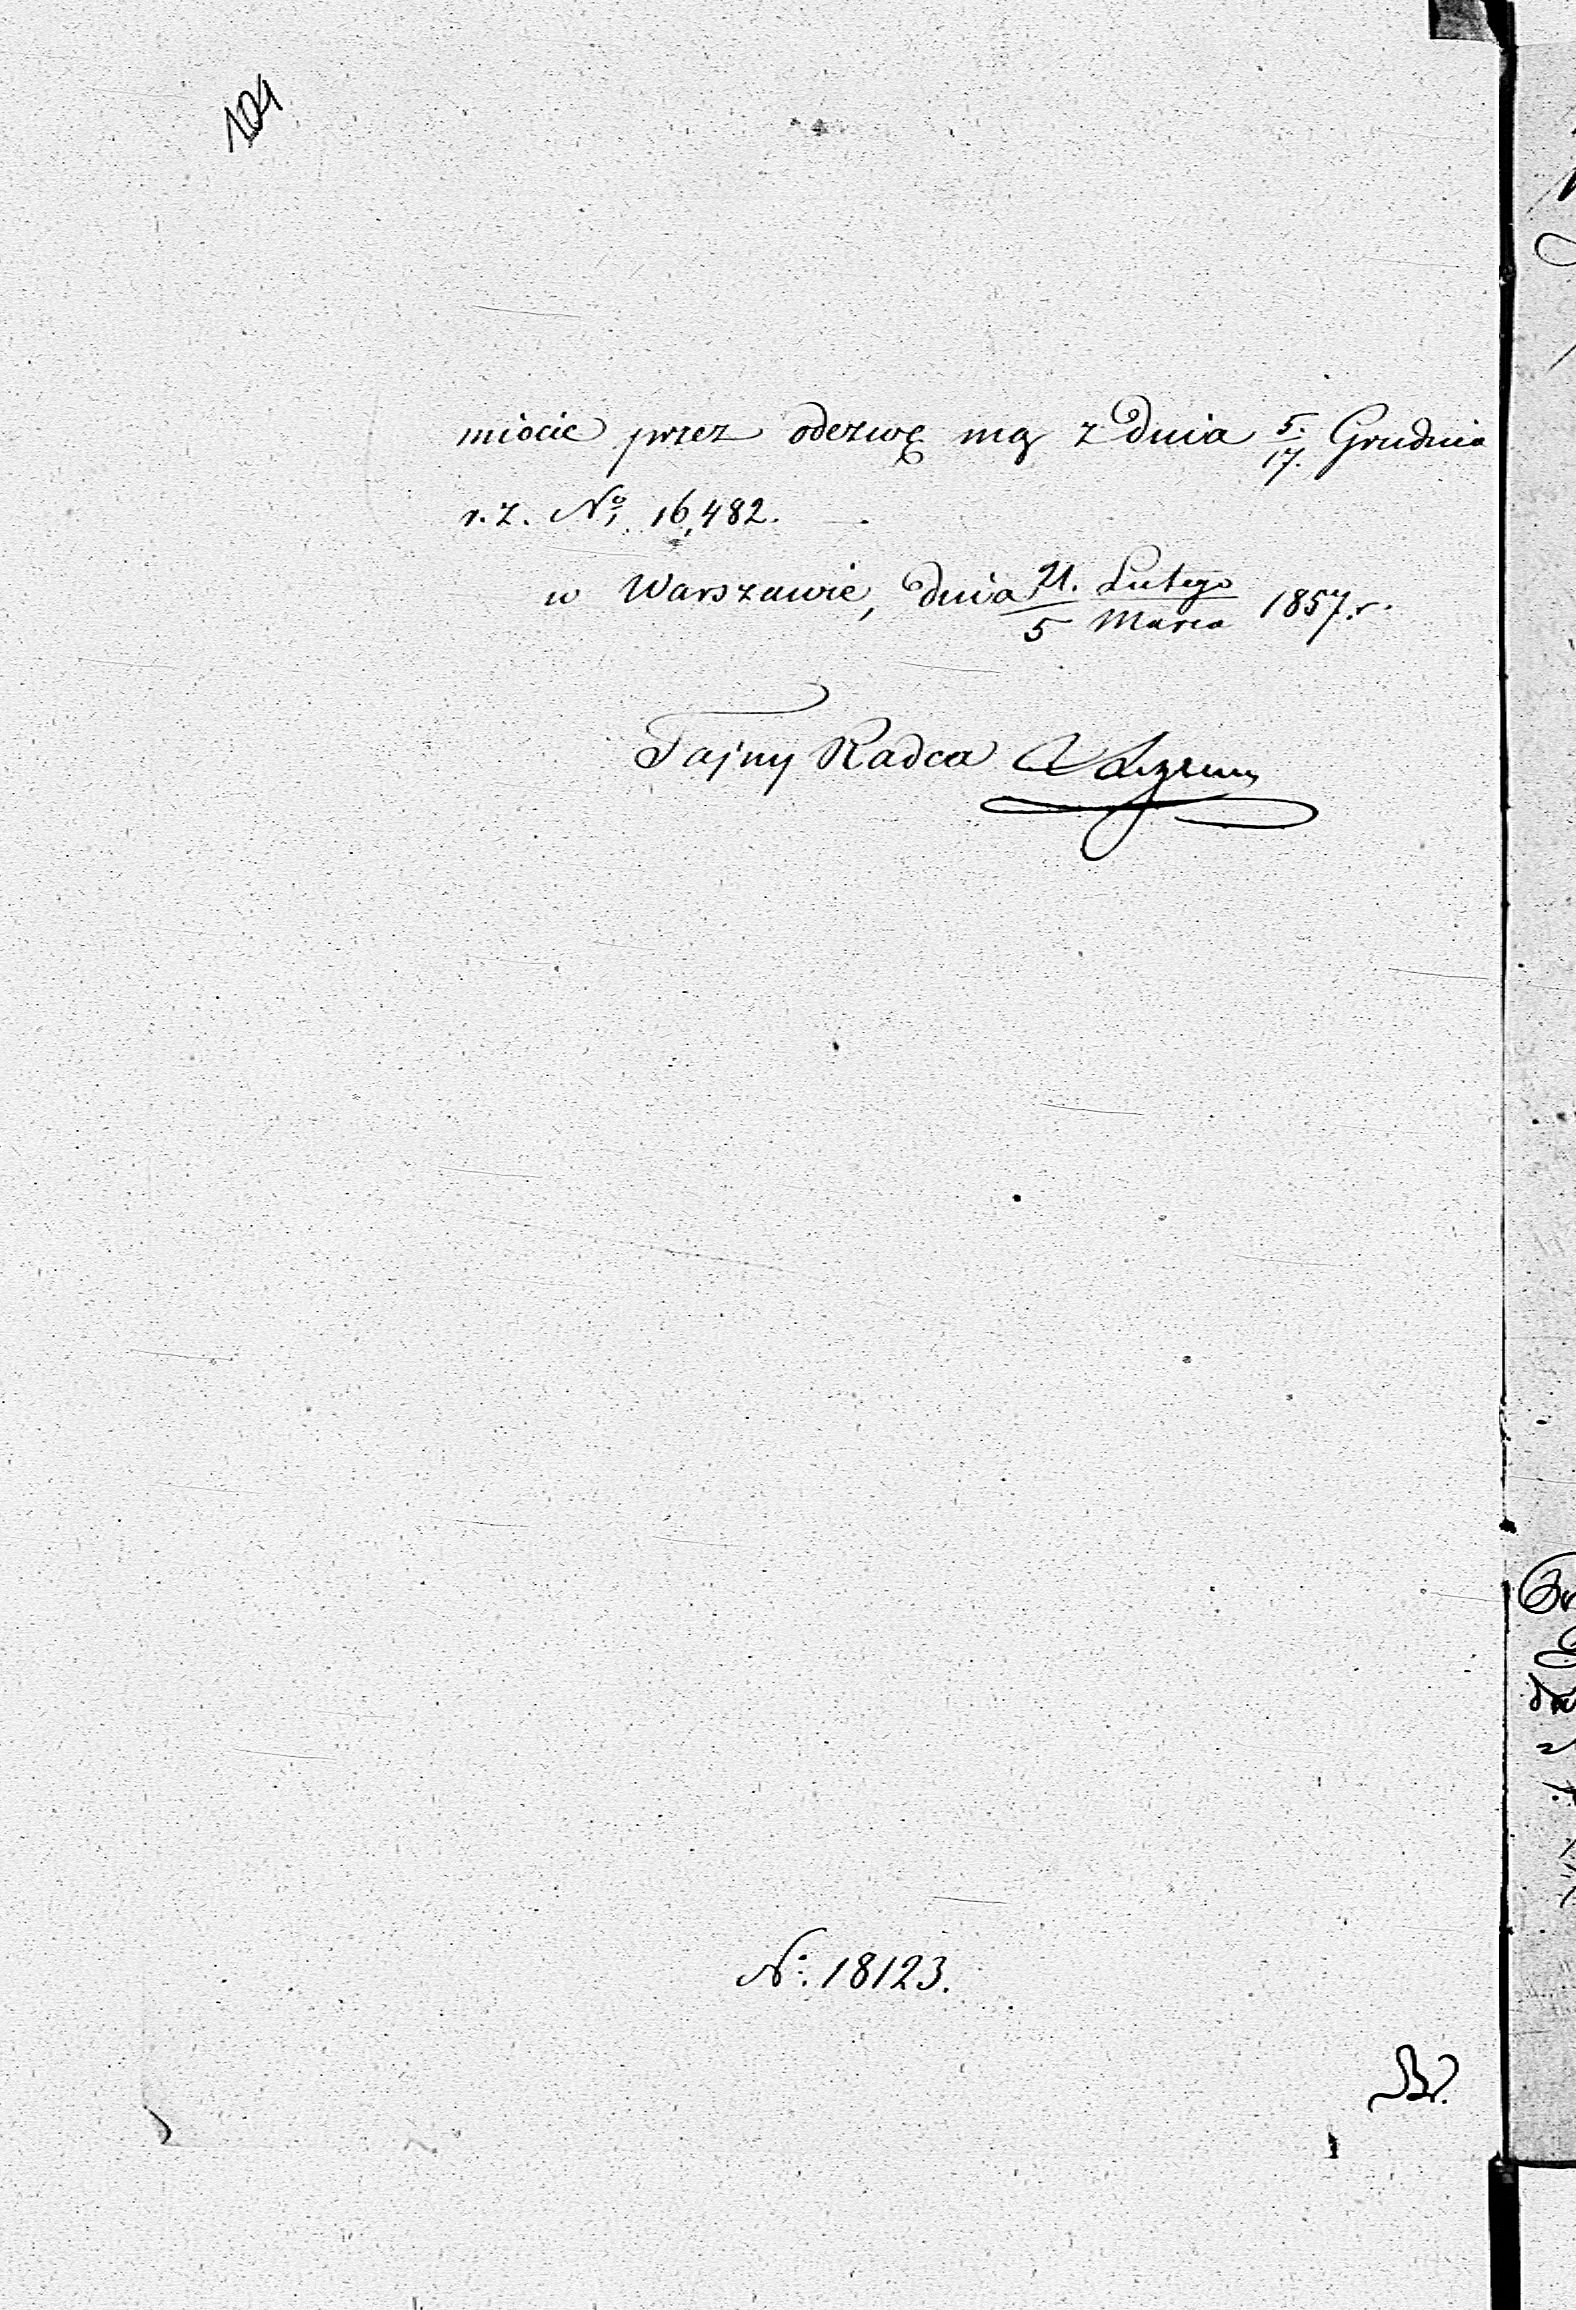 104
miocie przez odezwę mą z dnia 5./17. Grudnia
r. z. No 16,482.
w Warszawie, dnia 21. Lutego / 5 Marca 1857. r.
Tajny Radca
N: 18123.